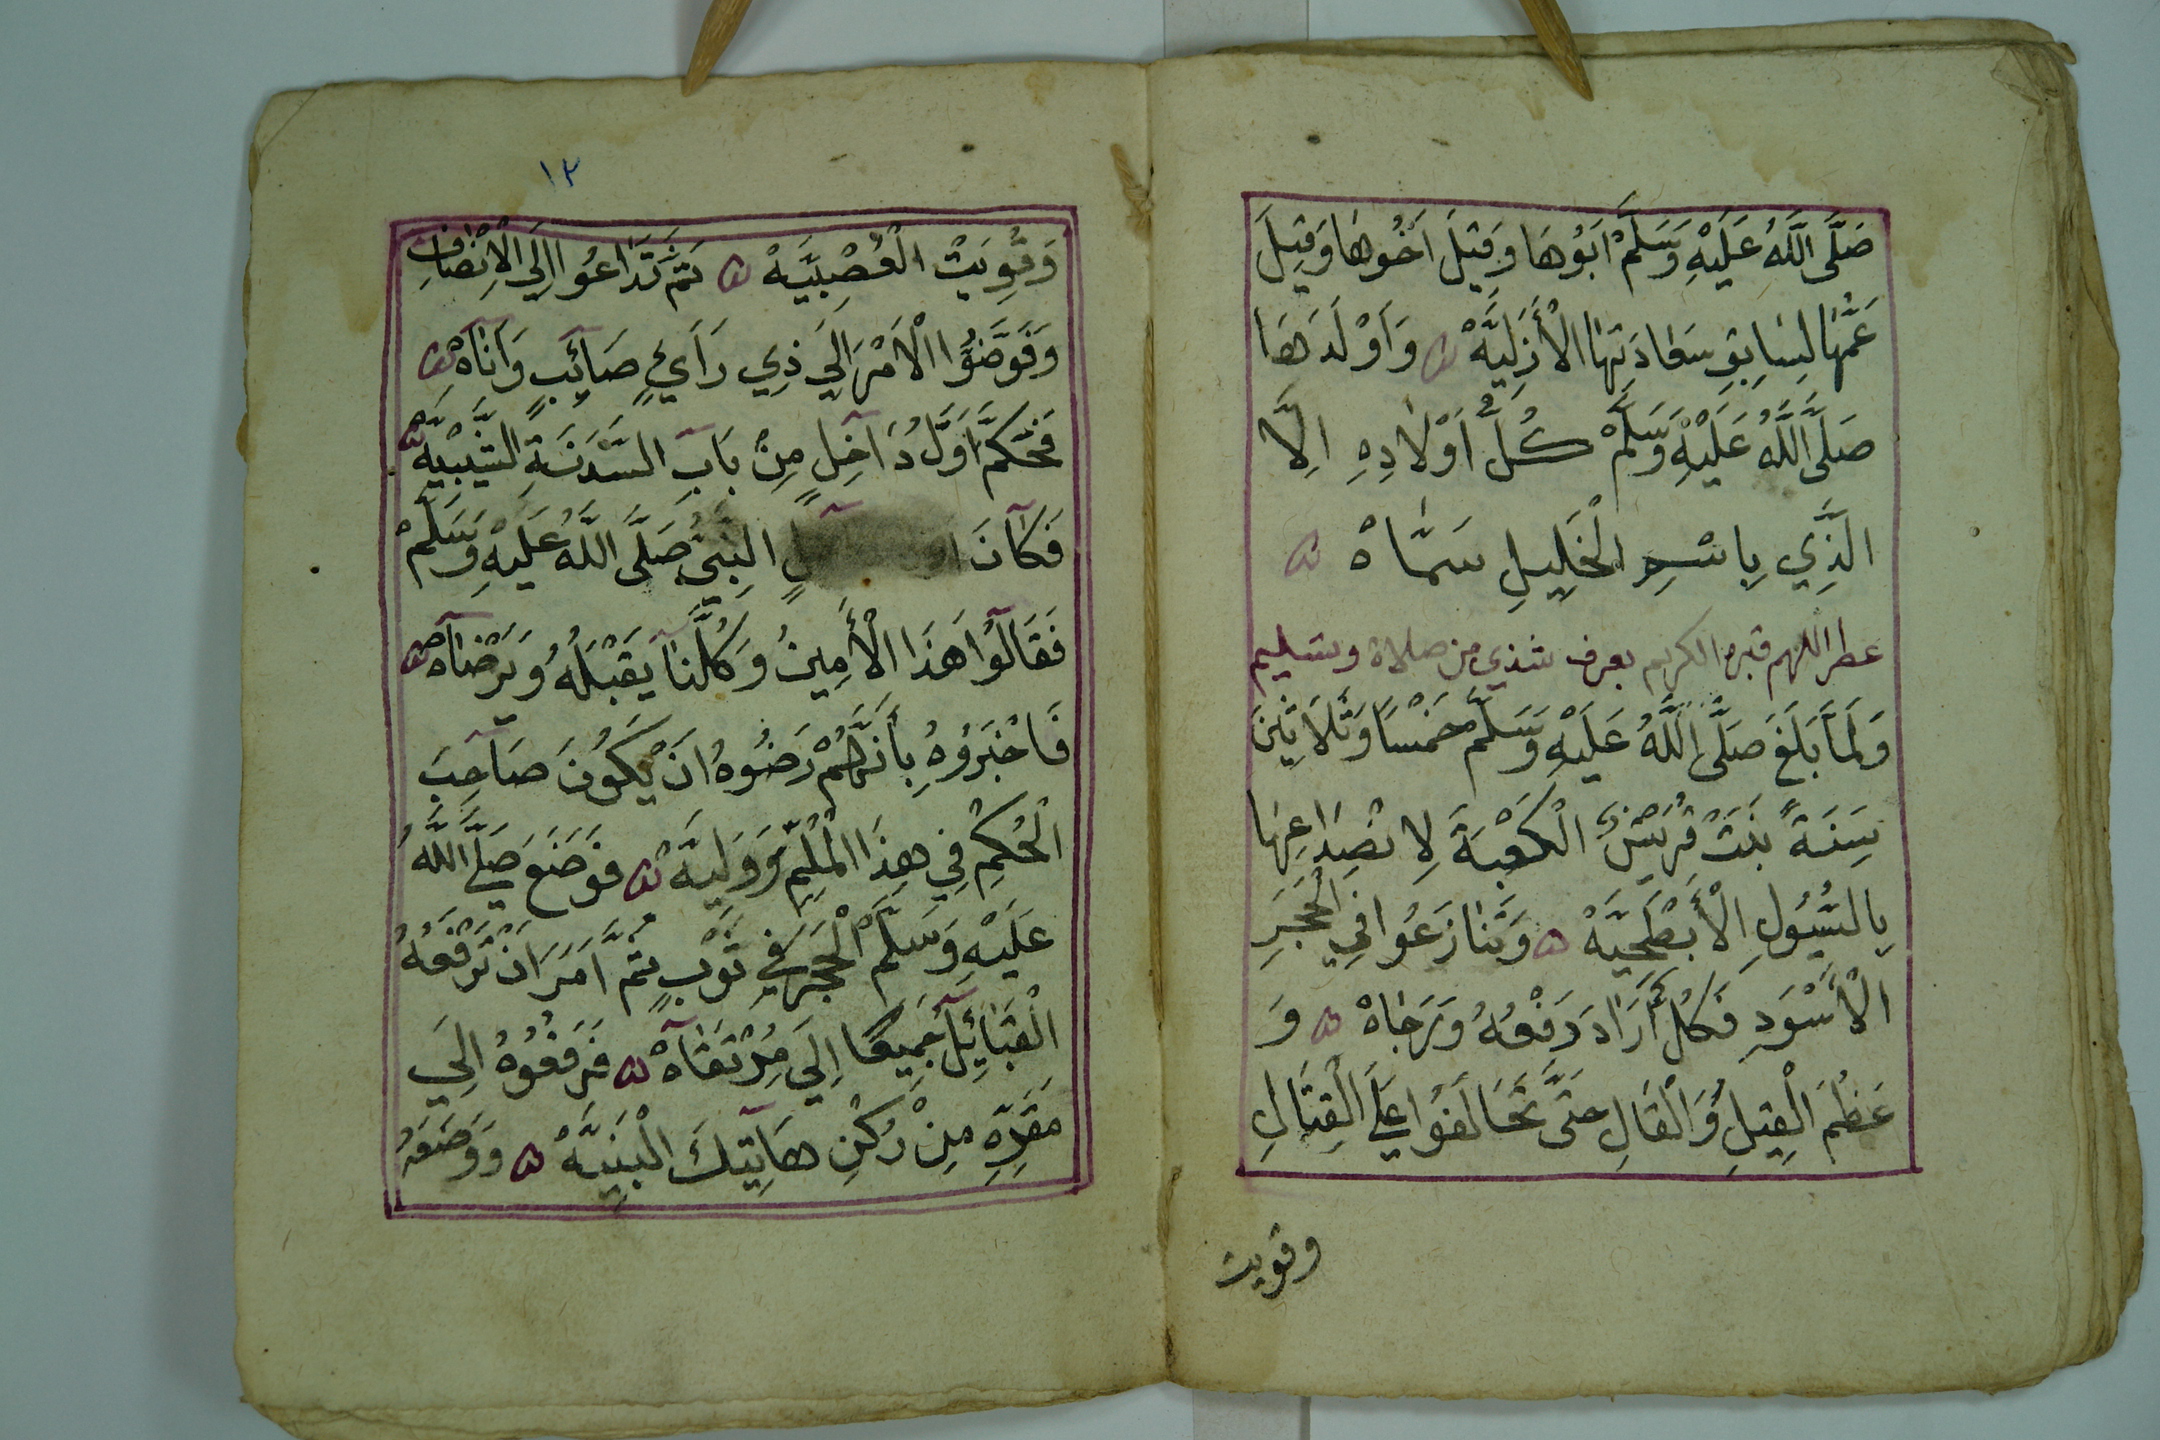 صَلَّى اللَّهُ عَلَيْهِ وَسَلَّمْ اَبُوْهَا وَقِيْلَ اَخُوْهَا وَقِيلَ
عَمُّهَا لِسَابِقِ سَعَادَتِهَا الْأَزَلِيَّهْ ۞ وَاَوْلَدَهَا
صَلَّى اللَّهُ عَلَيْهِ وَسَلَّمْ كُلَّ اَوْلَادِهِ اِلَّا
الَّذِي بِاسْمِ الْخَلِيلِ سَمَّاهْ ۞
عطر اللهم قبره الكريم بعرف شذي من صلاة وتسليم
وَلَمَّا بَلَغَ صَلَّى اللَّهُ عَلَيْهِ وَسَلَّمْ خَمْسًا وَثَلَاثِيْنَ
سَنَةً بَنَتْ قُرَيْشٌ الْكَعْبَةَ لِانْصِدَاعِهَا
بِالسُّيُولِ الْأَبْطَحِيَّهْ ۞ وَتَنَازَعُوا فِي الْحَجَرِ
الْأَسْوَدِ فَكُلٌّ اَرَادَ رَفْعَهُ وَرَجَاهْ ۞ وَ
عَظُمَ الْقِيلُ وَالْقَالِ حَتَّى تَحَالَفُوا عَلَى الْقِتَالِ
وقويت
١٢
وَقُوِيَتْ الْعُصْبِيَّهْ ۞ ثُمَّ تَدَاعُوا اِلَى الْاِنْصَافِ
وَفَوَّضُوا الْاَمْرَ اِلَى ذِي رَأيٍ صَائِبٍ وَاَنَاهْ ۞
فَحَكَّمَ اَوَّلُ دَاخِلٍ مِنْ بَابِ السَّدَنَةِ الشَّيْبِيَّهْ ۞
فَكَانَ النَّبِيُّ صَلَّى اللَّهُ عَلَيْهِ وَسَلَّمْ
فَقَالُوا هَذَا الْأَمِينُ وَكُلُّنَا يَقْبَلُهُ وَيَرْضَاهْ ۞
فَاَخْبَرُوهُ بِأَنَّهُمْ رَضُوهُ اَنْ يَكُونَ صَاحِبَ
الْحُكْمِ فِي هَذَا الْمُلِمِّ وَوَلِيَّهْ ۞ فَوَضَعَ صَلَّى اللَّهُ
عَلَيْهِ وَسَلَّمَ الْحَجَرَ فِي ثَوْبٍ ثُمَّ اَمَرَ اَنْ تَرْفَعَهُ
الْقَبَائِلُ جَمِيعًا اِلَى مُرْتَقَاهْ ۞ فَرَفَعُوْهُ اِلَى
مَقَرِّهِ مِنْ رُكْنِ هَاتِيْكَ الْبَنِيَّهْ ۞ وَوَضَعَهُ